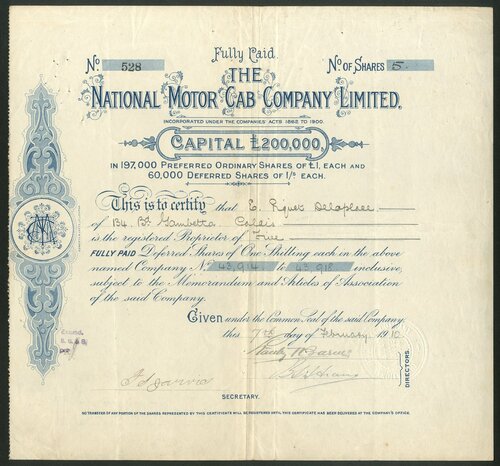 Fully Paid.
No 528
No OF SHARES 5.
THE
NATIONAL MOTOR CAB COMPANY LIMITED.
INCORPORATED UNDER THE COMPANIES' ACTS 1862 TO 1900.
CAPITAL £200,000,
IN 197,000 PREFERRED ORDINARY SHARES OF £1, EACH AND
60,000 DEFERRED SHARES OF 1/s EACH.
This is to certify that E. Delaplace
of 134, Bd Gambetta Calais
is the registered Proprietor of Five
FULLY PAID Deferred Shares of One Shilling each in the above
named Company No 43,914 to 43,918 inclusive,
subject to the Memorandum and Articles of Association
of the said Company.
Given under the Common Seal of the said Company
this 7th day of February 1910
DIRECTORS.
SECRETARY.
NO TRANSFER OF ANY PORTION OF THE SHARES REPRESENTED BY THIS CERTIFICATE WILL BE REGISTERED UNTIL THIS CERTIFICATE HAS BEEN DELIVERED AT THE COMPANY'S OFFICE.